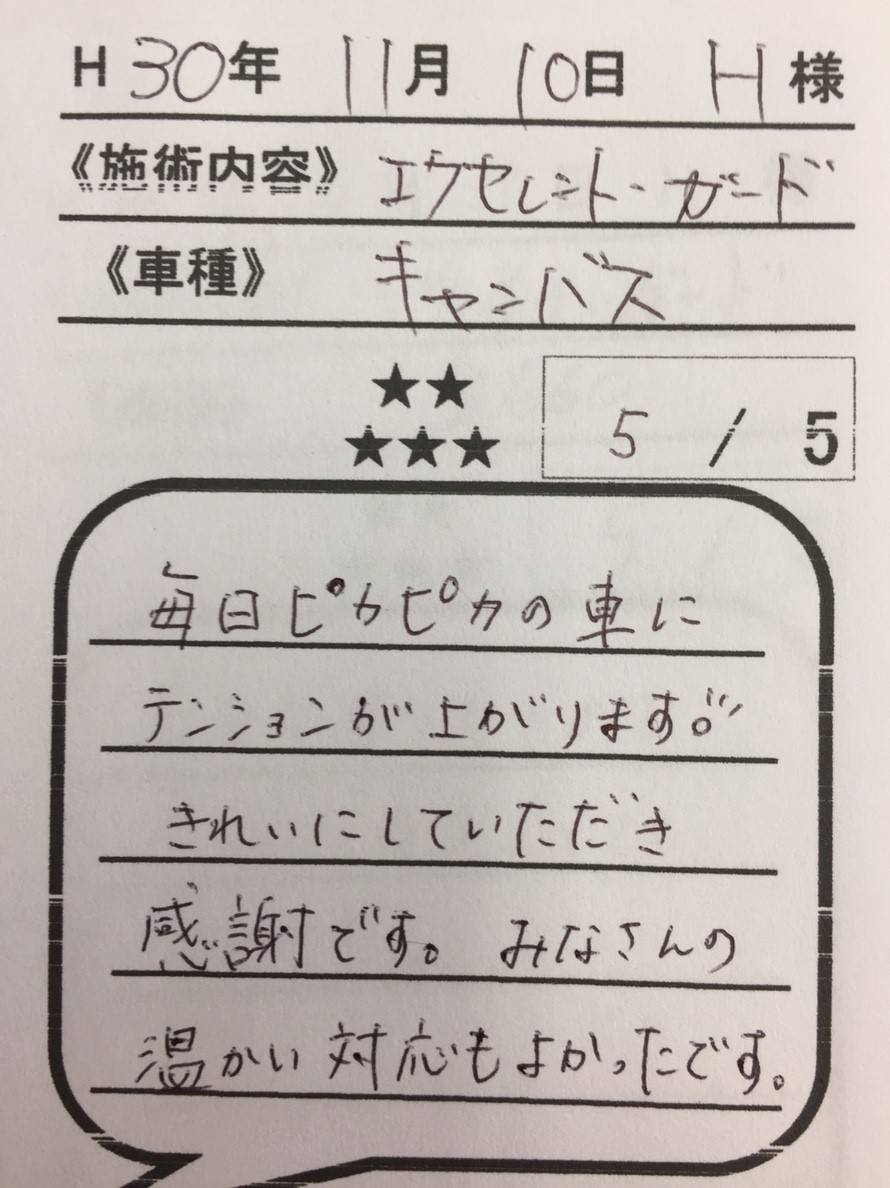 H 30年 11月 10日 H 様
《施術内容》 エクセレント・ガード
《車種》 キャンバス
★★
★★★ 5 / 5
毎日ピカピカの車に
テンションが上がります。
きれいにしていただき
感謝です。 みなさんの
温かい対応もよかったです。